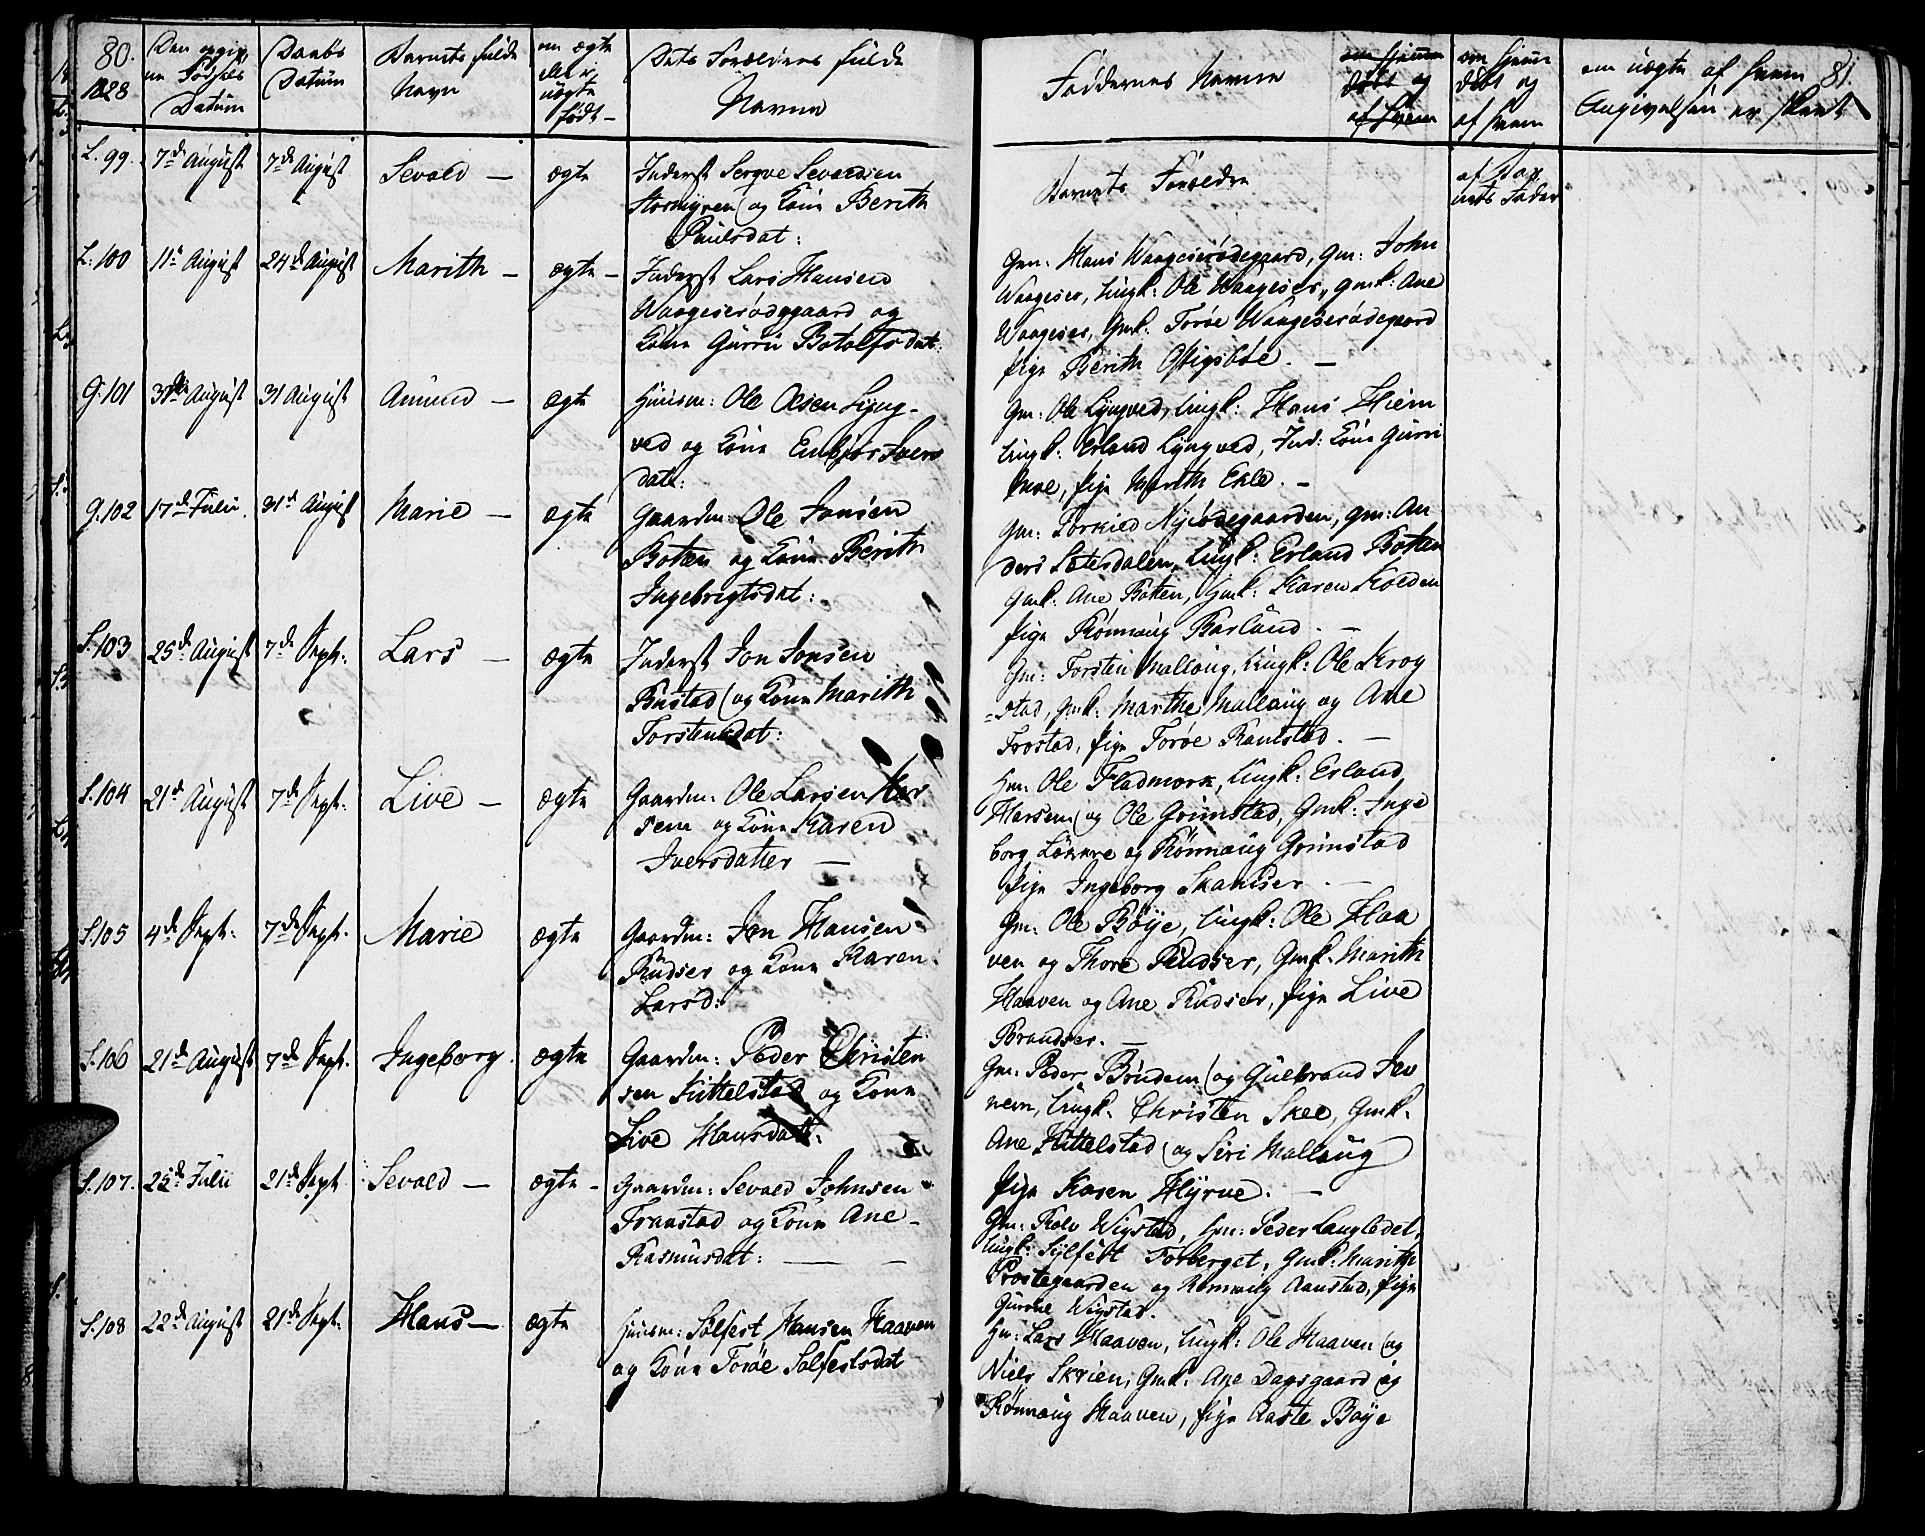 80.
1828
Den opgiv
ne Fødsels
Datum
Daabs
Datum
Barnets fulde
Navn
om ægte
eller
uægte
født -
Dets Forældres fulde
Navne
L. 99. 7de August 7de August Sevald - ægte Inderst Sevald
Stormyren og Kone Berith
Paulsdat:
L. 100 11te August 24de August Marith - ægte - Inderst Lars Hansen
Waageserødegaard og
Kone Gurri Botolfsdat:
G. 101 August 31 August Amund - ægte Huusm: Ole Olsen Lyng-
ved og Kone Embjør Ivers
dat:
G. 102 17de Julii. 31te August Marie - ægte Gaardm: Ole Jonsen
Botten og Kone Berith
Ingebrigtsdat:
S. 103 25de August 7de Sept: Lars - ægte Inderst Jon Jonsen
og Kone Marith
Torstensdat:
S. 104 21de August 7de Sept: Live - ægte Gaardm: Ole Larsen Har
sem og Kone Karen
Iversdatter -
S. 105 4de Sept: 7de Sept. Marie ægte Gaardm: Jon Hansen
Rudser og Kone Karen
Larsd:
S. 106 21de August 7de Sept. Ingeborg. ægte Gaardm: Peder Christen
sen Kittelstad og Kone
Live Hansdatt:
S. 107. 25de Julii 21de Sept Sevald - ægte - Gaardm: Sevald Johnsen
Fraastad og Kone Ane -
Rasmusdat: -
S. 108 22de August 21de Sept: Hans - ægte Huusm: Solfest Hansen Haaven
og Kone Torøe Solfestsdat
81.
Faddernes Navne
om hjemme
døbt og
af hvem
om hjemme
døbt og
af hvem
om uægte af hvem
Angivelsen er skeet
Barnets Forældre
af Bar
nets Fader
Gm: Hans Waageserødegaard, Gm: John
Waageser, Ungk: Ole Waageser, Gmk: Ane
Waageser, Gmk. Torøe Waageserødegaard
Pige Berith -
Gm: Ole Lyngved, Ungk: Hans Hiem
Ungk: Erland Lyngved, Ind: Kone Gurri
Moe, Pige Marith Ekle. -
Gm: Nyrødegaarden, Gm: An
ders Sletesdalen, Ungk: Erland Botten
Gmk: Ane Botten, Gmk: Karen Kolden
Pige Rønnaug Barland. -
Gm: Torsten Mallaug, Ungk: Ole Krog
stad, Gmk: Marthe Mallaug og Ane
Frostad, Pige Torøe Ramstad. -
Hm: Ole Fladmork, Ungk: Erland
Harsem og Ole Grimstad, Gmk: Inge
borg Løkkre og Rønnaug Grimstad
Pige Ingeborg Skamser. -
Gm: Ole Bøye, Ungk: Ole Haa
ven og Thore Rudser, Gmk: Marith
Haaven og Ane Rudser, Pige Live
Brandser. -
Gm: Peder Bøndem og Gulbrand
nem, Ungk. Christen Skee, Gmk.
Ane Kittelstad og Siri Mallaug
Pige Karen Hyrve. -
Gm: Rolv Wigstad, Hm: Peder Langledet,
Ungk: Sylfest Forberget, Gmk: Marith
Prostegaarden og Rønnaug Aanstad, Pige
Wigstad.
Hm: Lars Haaven, Ungk: Ole Haaven og
Niels Skrien, Gmk: Ane Dagsgaard og
Rønnaug Haaven, Pige Aaste Bøye